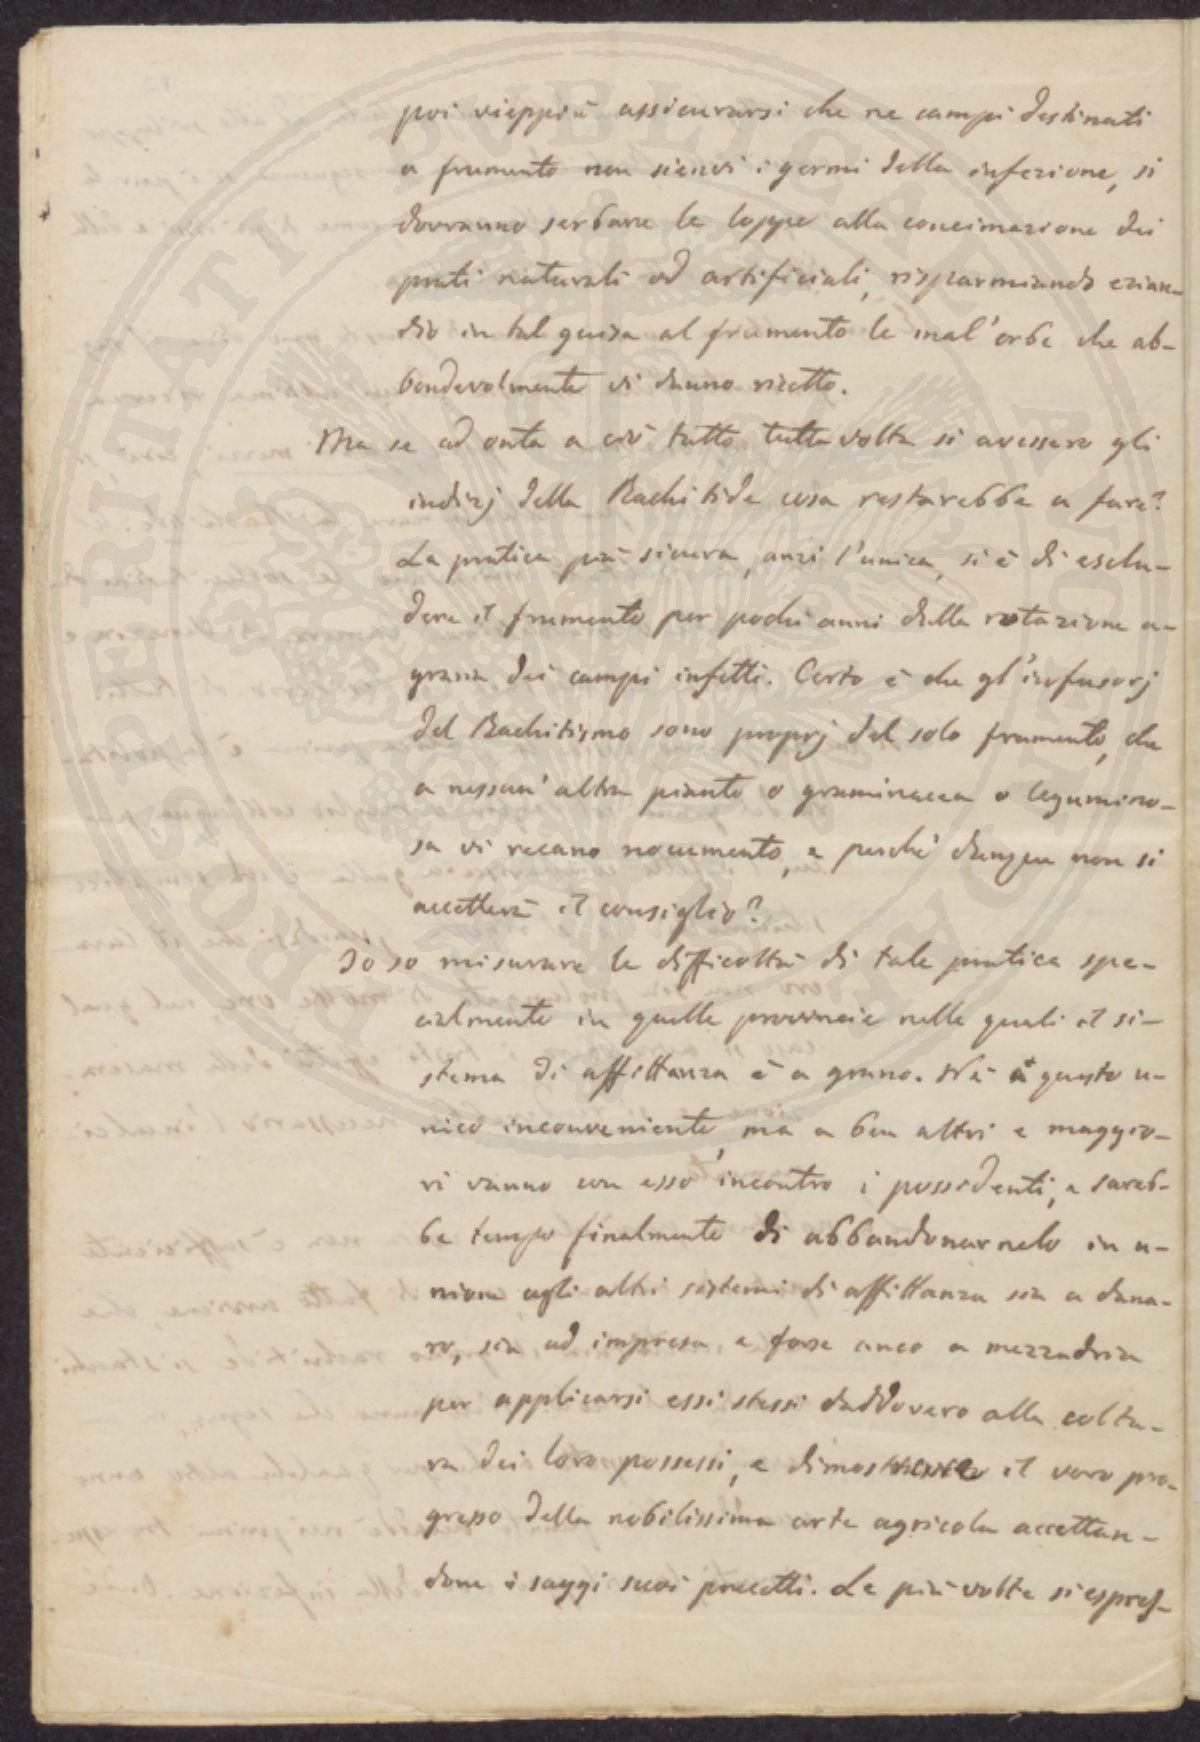 poi vieppiù assicurarsi che ne campi destinati
a frumento non sienvi i germi della infezione, si
dovranno serbare le loppe alla concimazione dei
prati naturali od artificiali, risparmiando ezian-
dio in tal guisa al frumento le mal'erbe che ab-
bondevolmente vi danno ricetto.
Ma se ad onta a ciò tutto tutta volta si avessero gli
indizj della Rachitide cosa restarebbe a fare?
La pratica più sicura, anzi l'unica, si è di esclu-
dere il frumento per pochi anni dalla rotazione a-
graria dei campi infetti. Certo è che gl'infusorj
del Rachitismo sono proprj del solo frumento, che
a nessun'altra pianta o graminacea o legumino-
sa vi recano nocumento, e perchè dunque non si
accetterà il consiglio?
Io so misurare le difficoltà di tale pratica spe-
cialmente in quelle provincie nelle quali il si-
stema di affittanza è a grano. Nè è questo u-
nico inconveniente, ma a ben altri e maggio-
ri vanno con esso incontro i possidenti, e sareb-
be tempo finalmente di abbandonarnelo in u-
nione agli altri sistemi di affittanza sia a dana-
ro, sia ad impresa e forse anco a mezzadria
per applicarsi essi stessi daddovero alla coltu-
ra dei loro possessi, e dimostrare il vero pro-
gresso della nobilissima arte agricola accettan-
done i saggi suoi precetti. Le più volte si espres-
PROSPERITATI PUBLICAE AUGENDAE